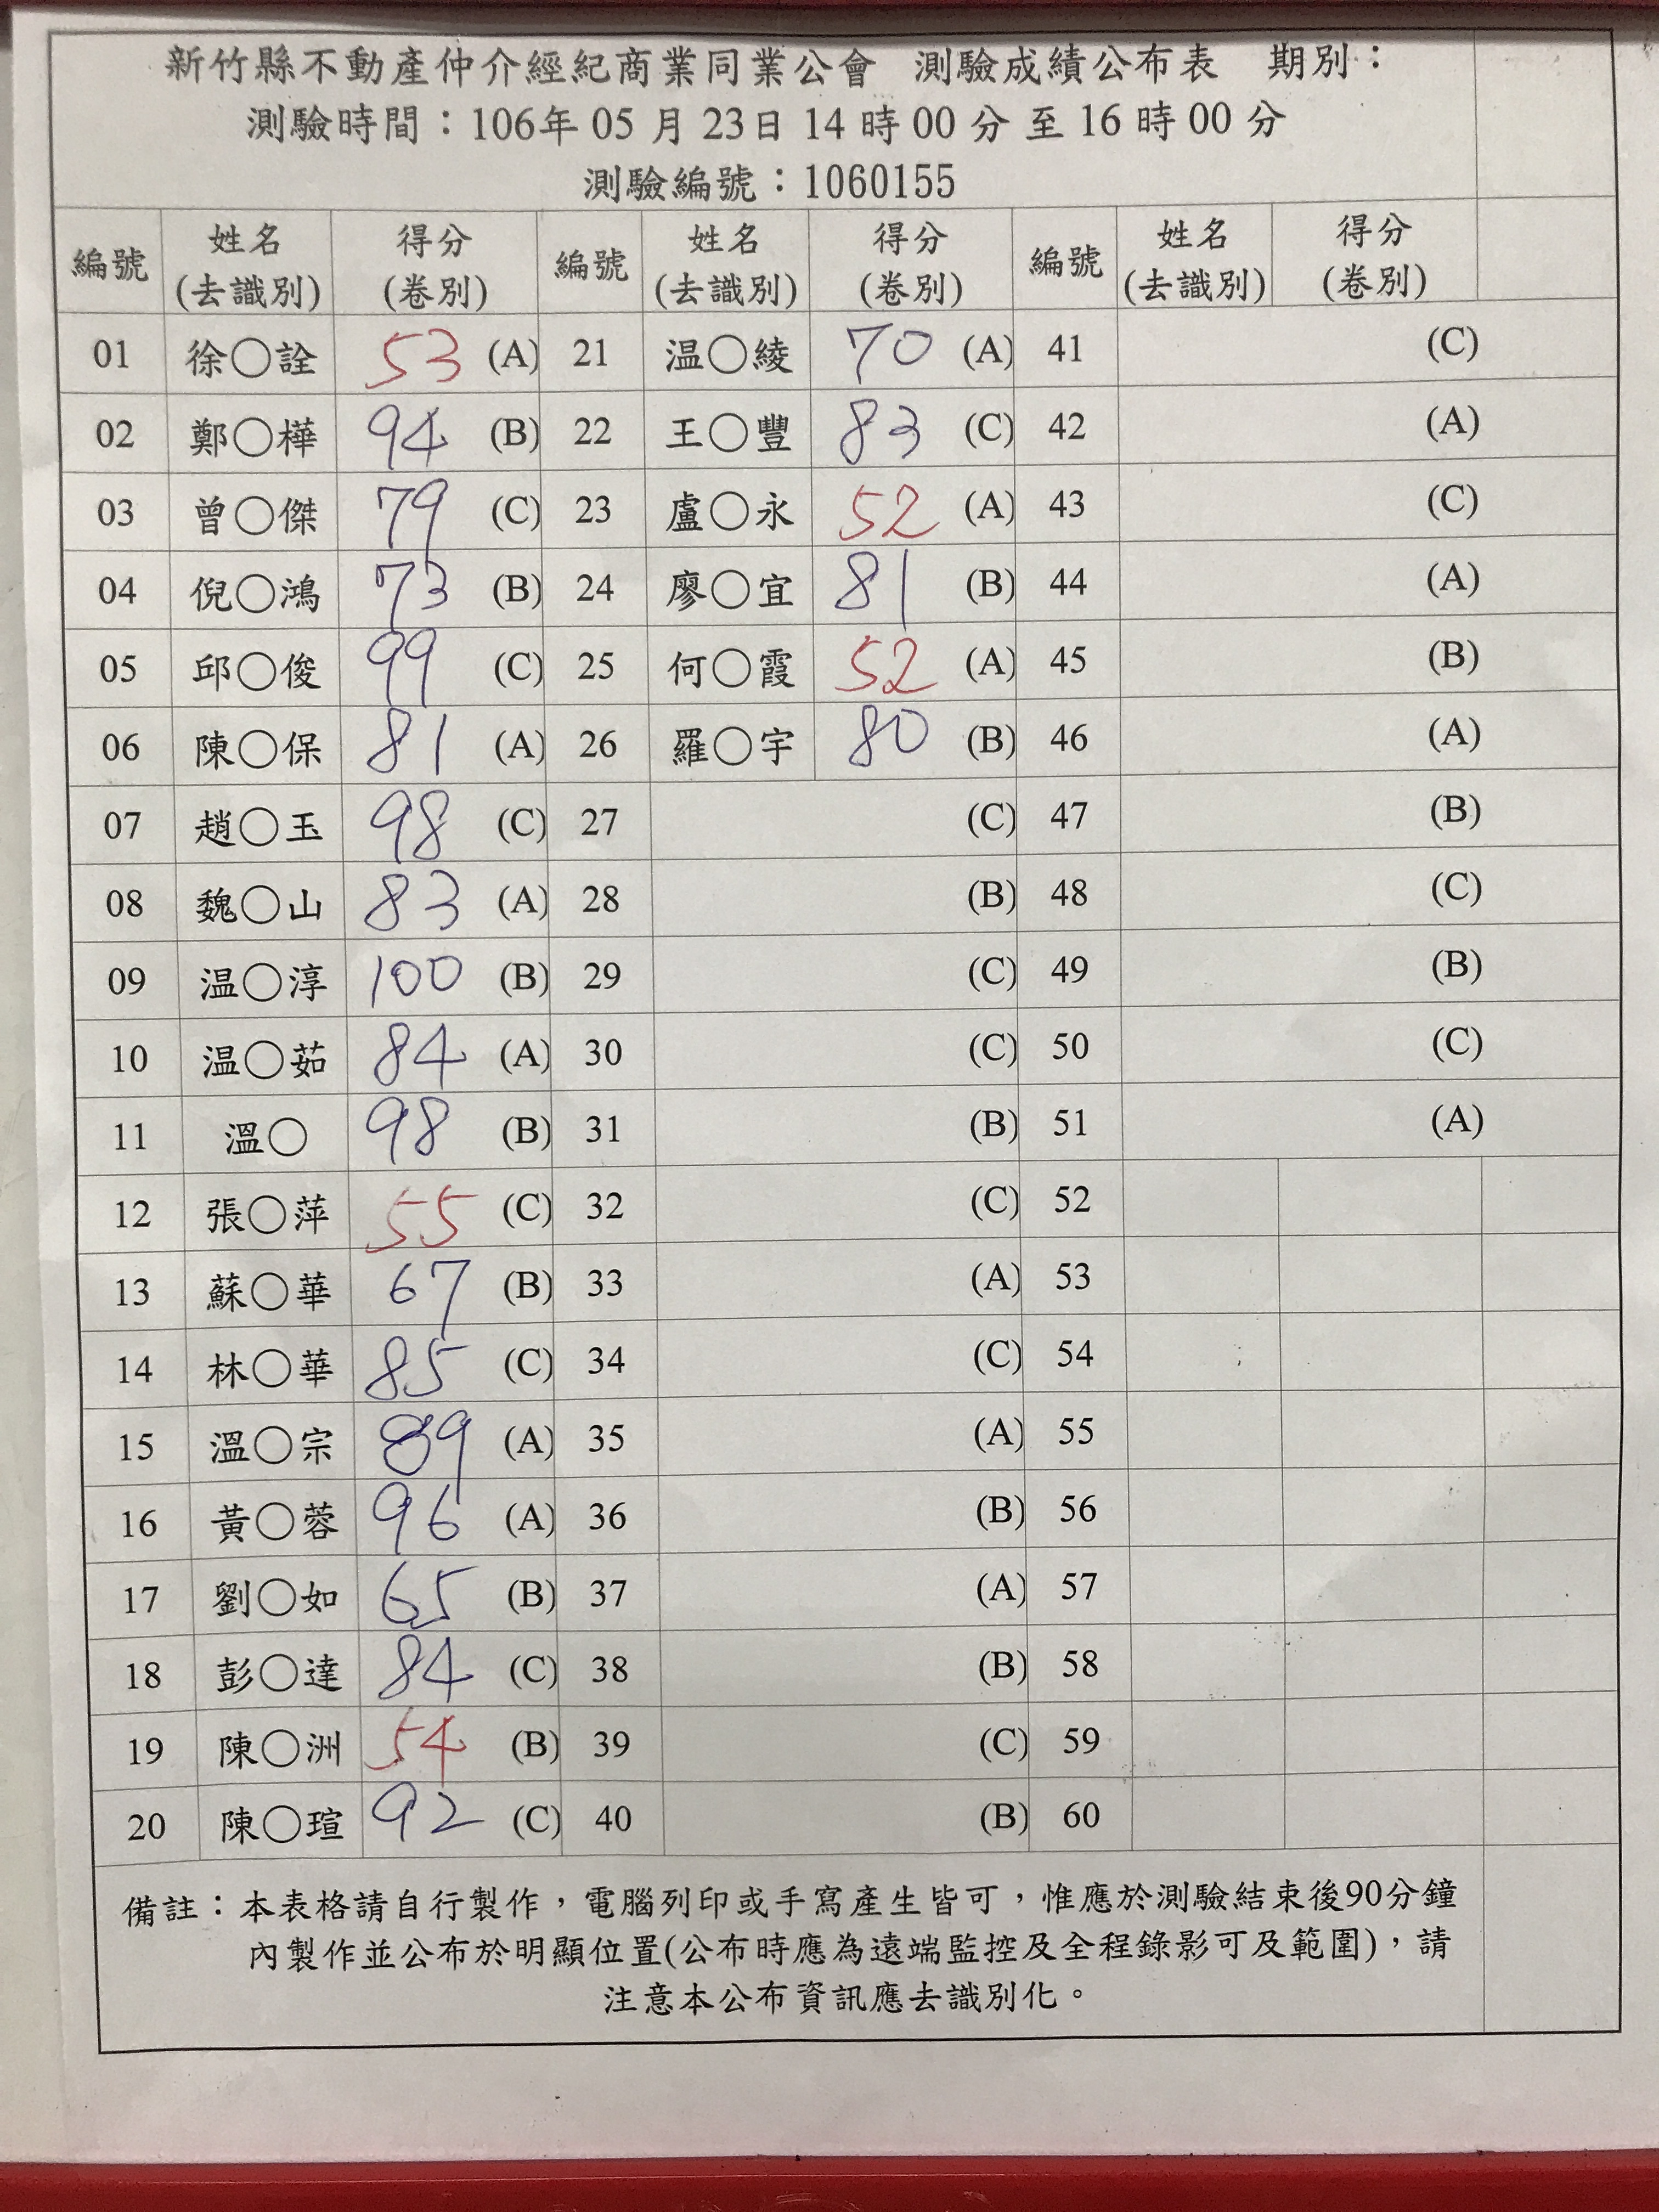 新竹縣不動產仲介經紀商業同業公會 測驗成績公布表 期別：
測驗時間：106年 05 月 23日 14 時 00 分 至 16 時 00 分
測驗編號：1060155
編號 姓名(去識別) 得分(卷別) 編號 姓名(去識別) 得分(卷別) 編號 姓名(去識別) 得分(卷別)
01 徐〇詮 53 (A) 21 温〇綾 70 (A) 41 (C)
02 鄭〇樺 94 (B) 22 王〇豐 83 (C) 42 (A)
03 曾〇傑 79 (C) 23 盧〇永 52 (A) 43 (C)
04 倪〇鴻 73 (B) 24 廖〇宜 81 (B) 44 (A)
05 邱〇俊 99 (C) 25 何〇霞 52 (A) 45 (B)
06 陳〇保 81 (A) 26 羅〇宇 80 (B) 46 (A)
07 趙〇玉 98 (C) 27 (C) 47 (B)
08 魏〇山 83 (A) 28 (B) 48 (C)
09 温〇淳 100 (B) 29 (C) 49 (B)
10 温〇茹 84 (A) 30 (C) 50 (C)
11 溫〇 98 (B) 31 (B) 51 (A)
12 張〇萍 55 (C) 32 (C) 52
13 蘇〇華 67 (B) 33 (A) 53
14 林〇華 85 (C) 34 (C) 54
15 溫〇宗 89 (A) 35 (A) 55
16 黃〇蓉 96 (A) 36 (B) 56
17 劉〇如 65 (B) 37 (A) 57
18 彭〇達 84 (C) 38 (B) 58
19 陳〇洲 54 (B) 39 (C) 59
20 陳〇瑄 92 (C) 40 (B) 60
備註：本表格請自行製作，電腦列印或手寫產生皆可，惟應於測驗結束後90分鐘
內製作並公布於明顯位置(公布時應為遠端監控及全程錄影可及範圍)，請
注意本公布資訊應去識別化。